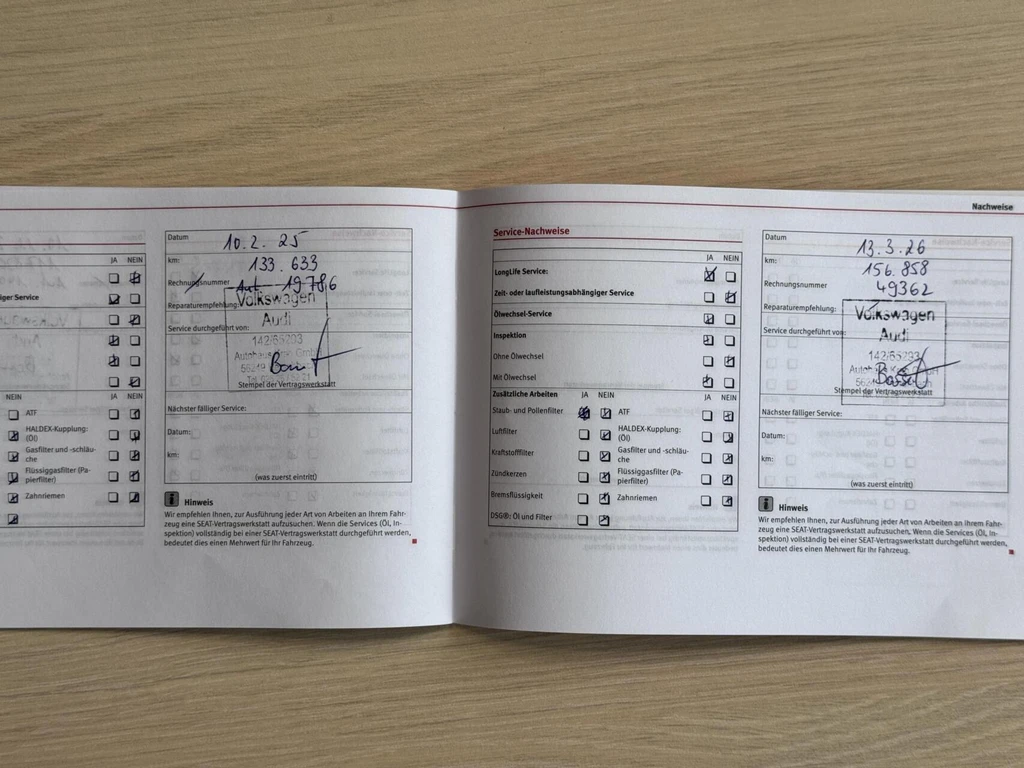 Nachweise
JA NEIN
iger Service
NEIN
ATF
HALDEX-Kupplung:
(Öl)
Gasfilter und -schläu-
che
Flüssiggasfilter (Pa-
pierfilter)
Zahnriemen
Datum 10.2.25
km: 133.633
Rechnungsnummer 19786
Reparaturempfehlung:
Volkswagen
Audi
Service durchgeführt von:
142/65203
Stempel der Vertragswerkstatt
Nächster fälliger Service:
Datum:
km:
(was zuerst eintritt)
Hinweis
Wir empfehlen Ihnen, zur Ausführung jeder Art von Arbeiten an Ihrem Fahr-
zeug eine SEAT-Vertragswerkstatt aufzusuchen. Wenn die Services (Öl, In-
spektion) vollständig bei einer SEAT-Vertragswerkstatt durchgeführt werden,
bedeutet dies einen Mehrwert für Ihr Fahrzeug.
Service-Nachweise
JA NEIN
LongLife Service:
Zeit- oder laufleistungsabhängiger Service
Ölwechsel-Service
Inspektion
Ohne Ölwechsel
Mit Ölwechsel
Zusätzliche Arbeiten JA NEIN JA NEIN
Staub- und Pollenfilter ATF
Luftfilter HALDEX-Kupplung:
(Öl)
Kraftstofffilter Gasfilter und -schläu-
che
Zündkerzen Flüssiggasfilter (Pa-
pierfilter)
Bremsflüssigkeit Zahnriemen
DSG®: Öl und Filter
Datum 13.3.26
km: 156.858
Rechnungsnummer 49362
Reparaturempfehlung:
Volkswagen
Audi
Service durchgeführt von:
142/65293
Stempel der Vertragswerkstatt
Nächster fälliger Service:
Datum:
km:
(was zuerst eintritt)
Hinweis
Wir empfehlen Ihnen, zur Ausführung jeder Art von Arbeiten an Ihrem Fahr-
zeug eine SEAT-Vertragswerkstatt aufzusuchen. Wenn die Services (Öl, In-
spektion) vollständig bei einer SEAT-Vertragswerkstatt durchgeführt werden,
bedeutet dies einen Mehrwert für Ihr Fahrzeug.